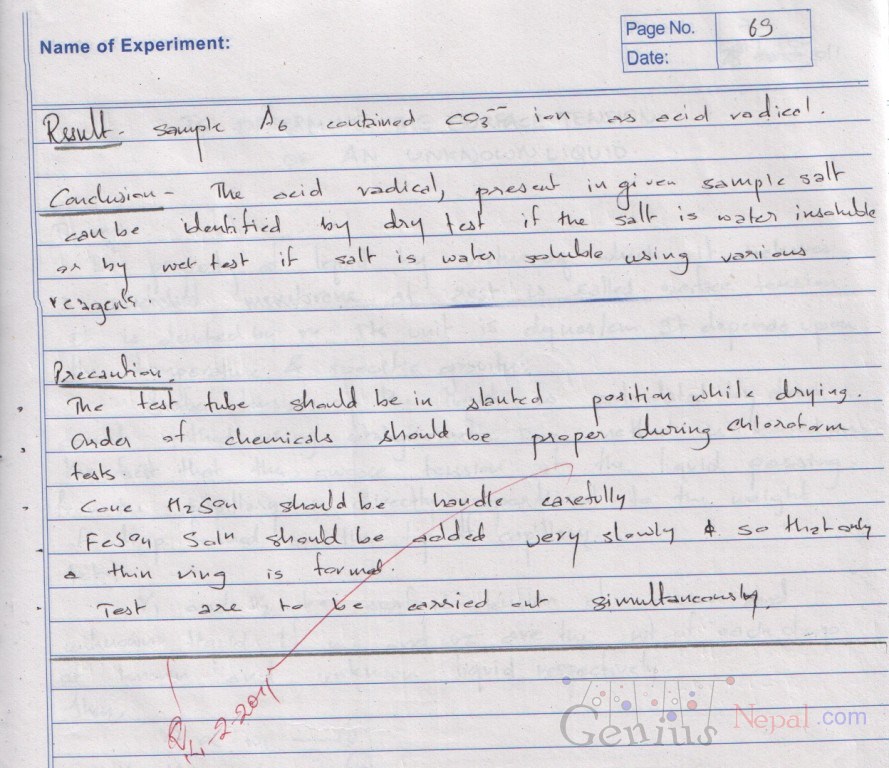 Name of Experiment:
Page No. 69
Date:
Result - sample A6 contained CO3-- ion as acid radical.
Conclusion - The acid radical, present in given sample salt
can be identified by dry test if the salt is water insoluble
or by wet test if salt is water soluble using various
reagens.
Precaution.
The test tube should be in slanted position while drying.
Order of chemicals should be proper during chloroform
tests.
Conc H2SO4 should be handle carefully
FeSO4 Soln should be added very slowly & so that only
a thin ring is formed.
Test are to be carried out simultaneously.
Genius Nepal.com